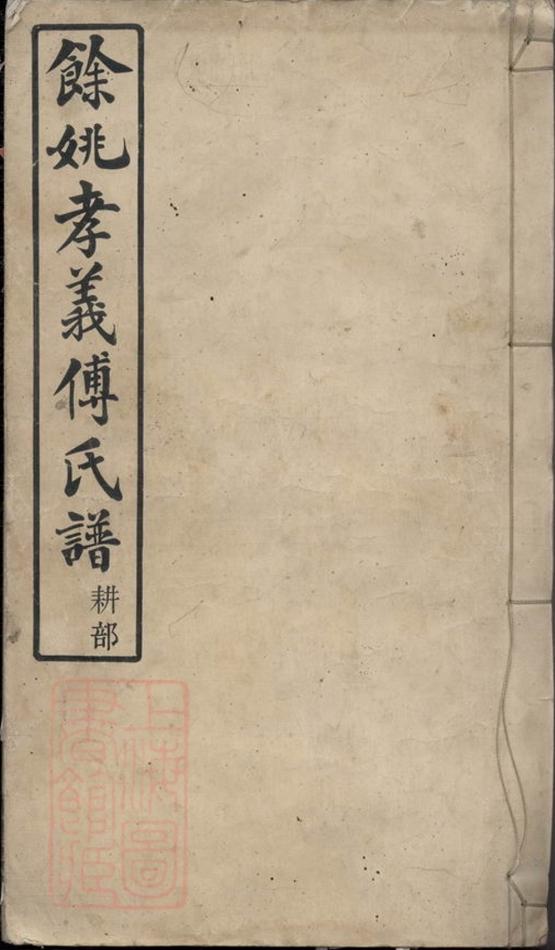 餘姚孝義傅氏譜
耕部
上海圖
書館藏